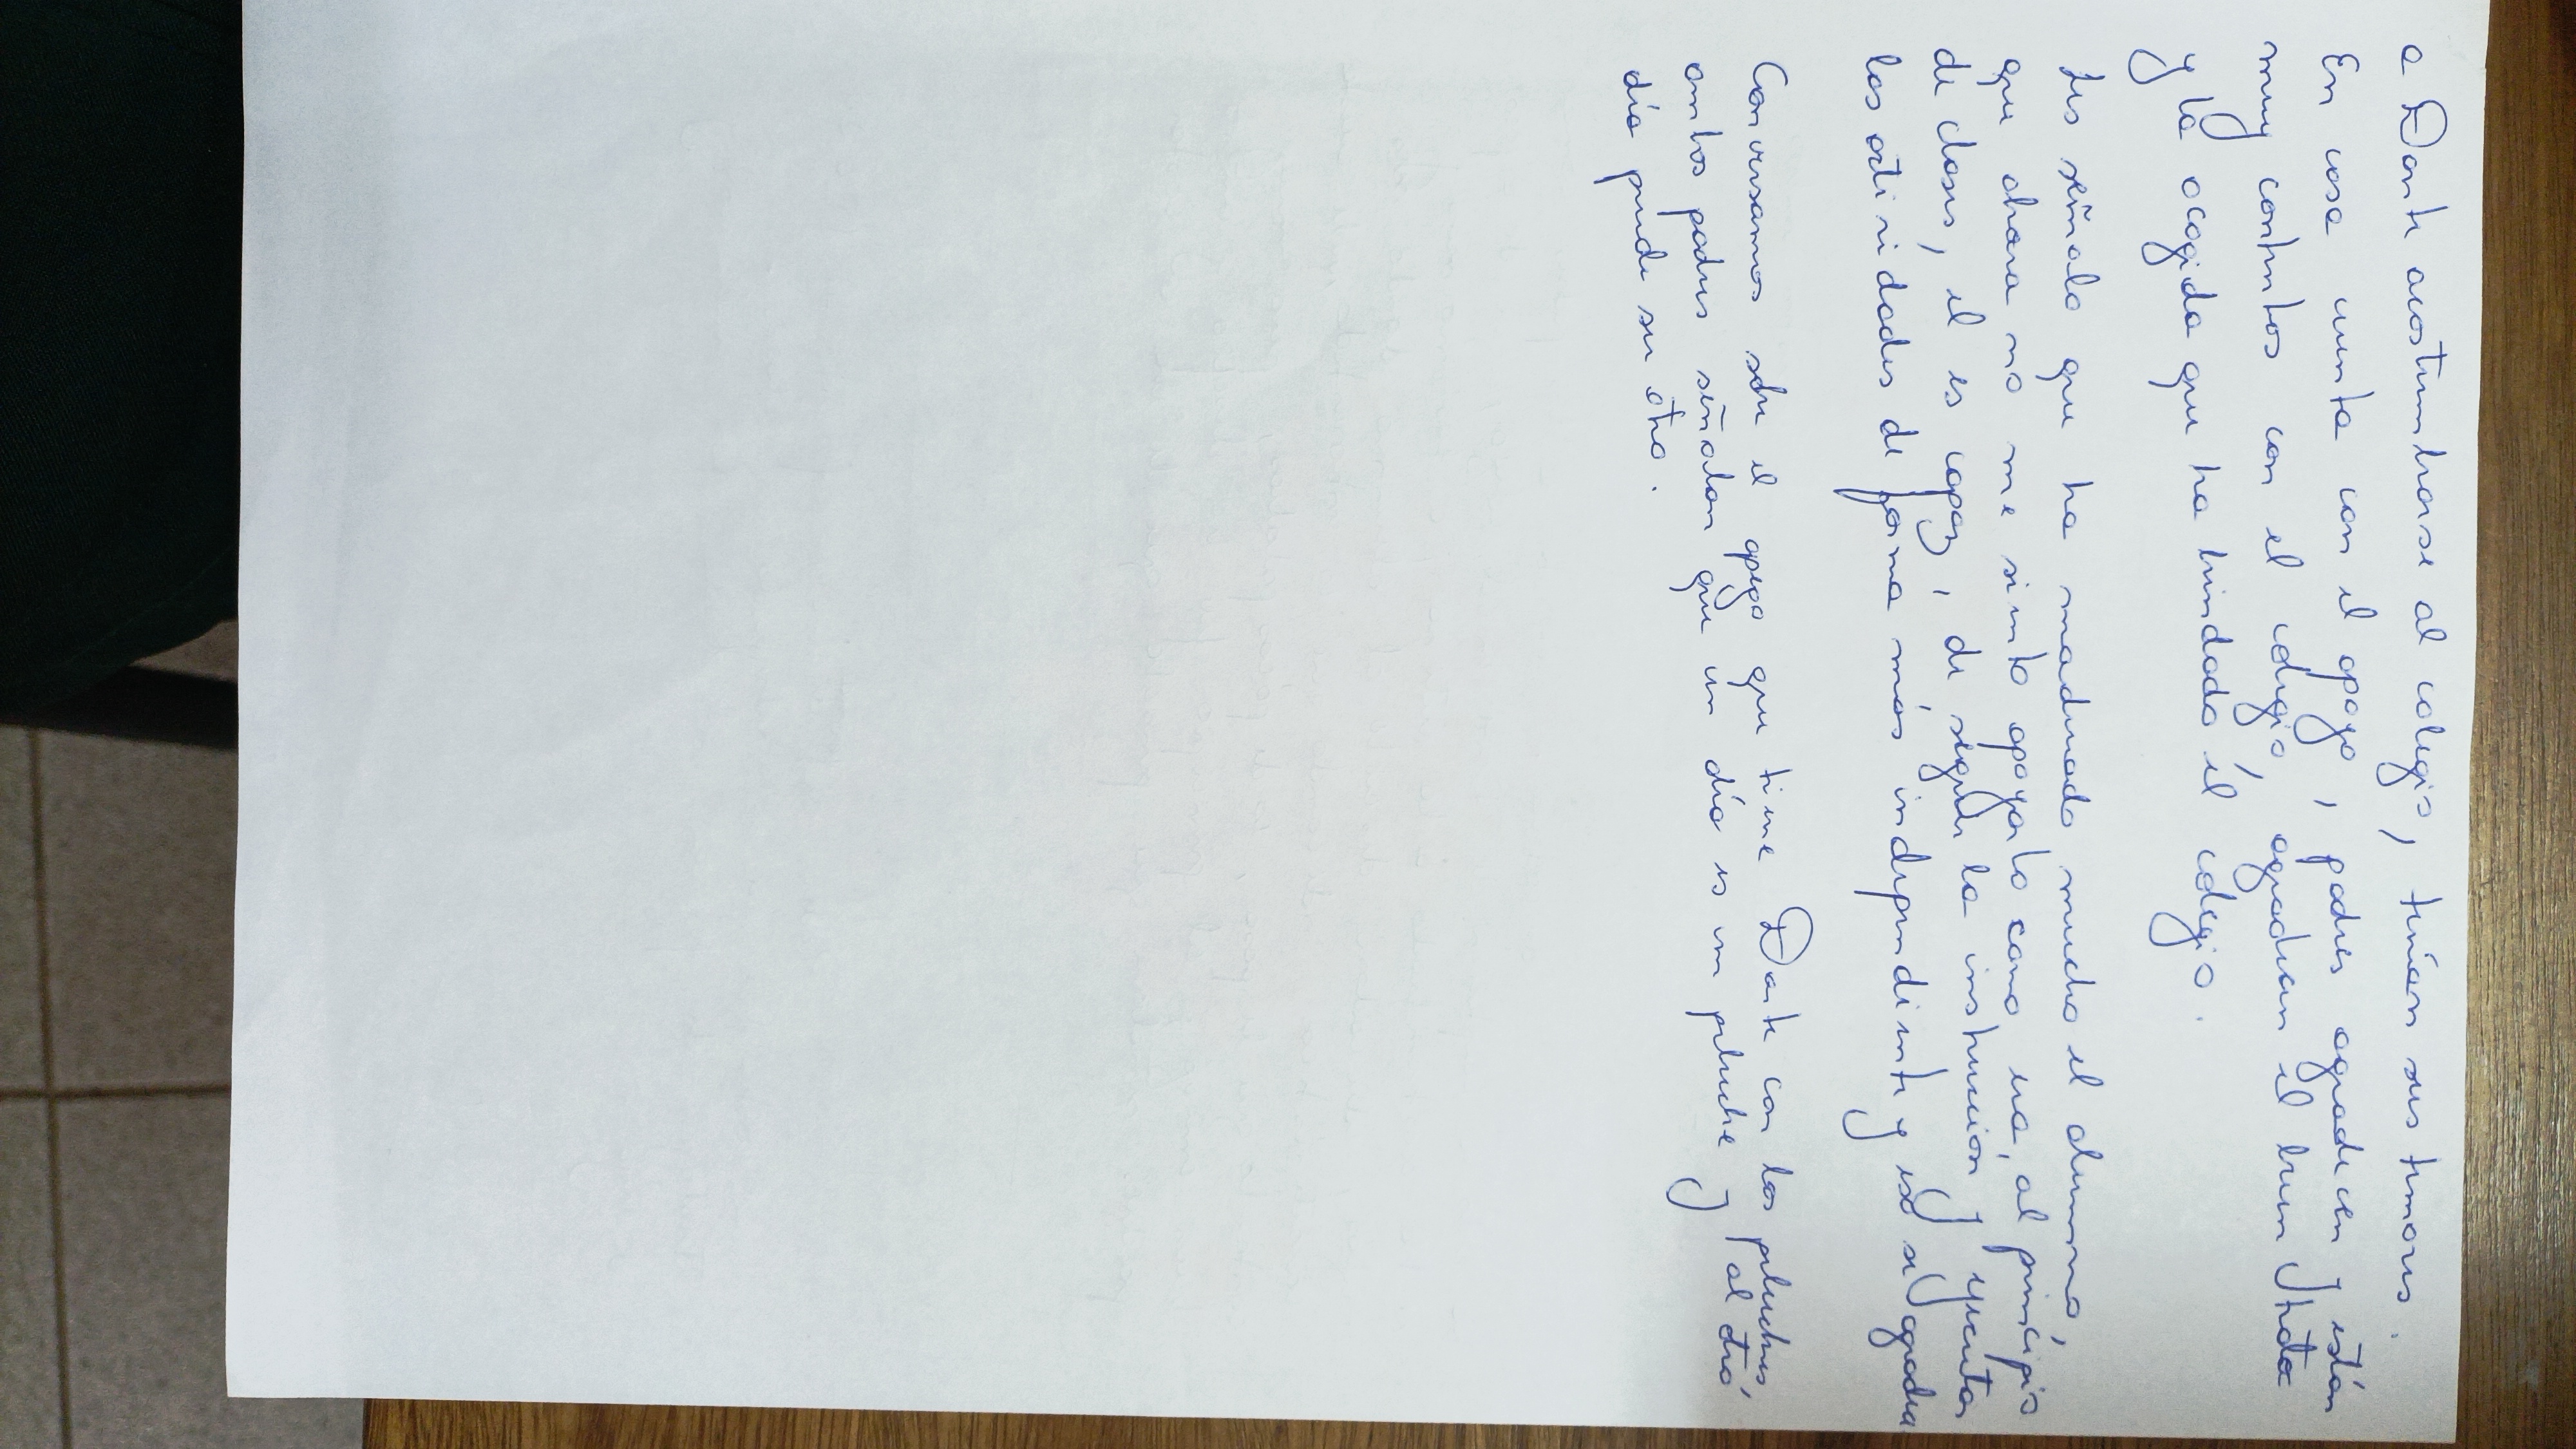 a Dante acostumbrarse al colegio, tenían sus temores.
En casa cuenta con el apoyo, padres agradecen y están
muy contentos con el colegio, agradecen el buen trato
y la acogida que ha brindado el colegio.
Les señalo que ha madurado mucho el alumno,
que ahora no me siento apoyarlo como era, al principio
de clases, él es capaz, de seguir la instrucción y ejecutar
las actividades de forma más independiente y eso se agradece
Conversamos sobre el apego que tiene Dante con los peluches
ambos padres señalan que un día es un peluche y al otro
día puede ser otro.